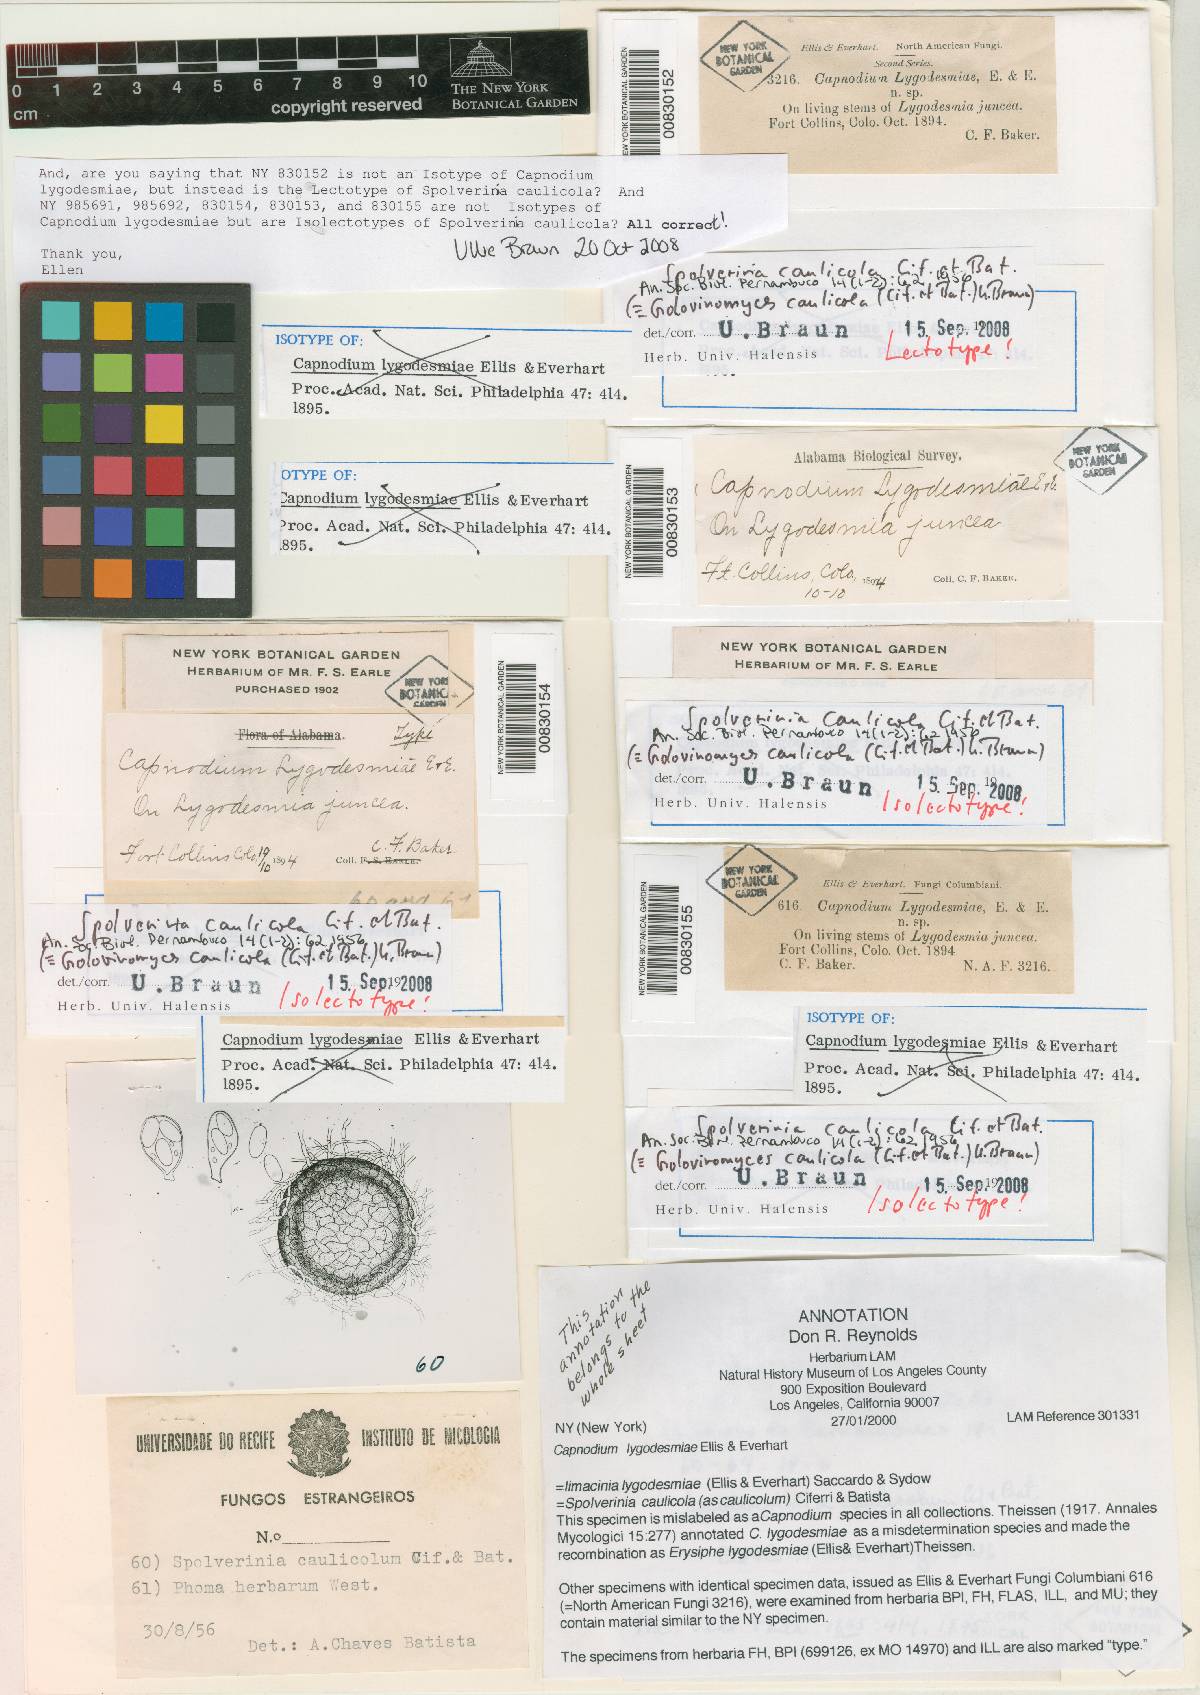 0 1 2 3 4 5 6 7 8 9 10
cm
copyright reserved
THE NEW YORK
BOTANICAL GARDEN
NEW YORK BOTANICAL GARDEN
00830152
NEW YORK
BOTANICAL
GARDEN
Ellis & Everhart. North American Fungi.
Second Series.
3216. Capnodium Lygodesmiae, E. & E.
n. sp.
On living stems of Lygodesmia juncea.
Fort Collins, Colo. Oct. 1894.
C. F. Baker.
And, are you saying that NY 830152 is not an Isotype of Capnodium
lygodesmiae, but instead is the Lectotype of Spolverinia caulicola? And
NY 985691, 985692, 830154, 830153, and 830155 are not Isotypes of
Capnodium lygodesmiae but are Isolectotypes of Spolverinia caulicola? All correct!
Thank you,
Ellen
Uwe Braun 20 Oct 2008
Spolverinia caulicola Cif. et Bat.
An. Soc. Biol. Pernambuco 14(1-2): 62, 1956
(≡ Golovinomyces caulicola (Cif. et Bat.) U. Braun)
det./corr. U. Braun 15. Sep. 19 2008
Herb. Univ. Halensis Lectotype!
ISOTYPE OF:
Capnodium lygodesmiae Ellis & Everhart
Proc. Acad. Nat. Sci. Philadelphia 47: 414.
1895.
OTYPE OF:
Capnodium lygodesmiae Ellis & Everhart
Proc. Acad. Nat. Sci. Philadelphia 47: 414.
1895.
NEW YORK BOTANICAL GARDEN
00830153
Alabama Biological Survey.
NEW YORK
BOTANICAL
GARDEN
Capnodium Lygodesmiae E & E.
On Lygodesmia juncea
Ft. Collins, Colo, 1894
10-10
Coll. C. F. BAKER.
NEW YORK BOTANICAL GARDEN
HERBARIUM OF MR. F. S. EARLE
Spolverinia caulicola Cif. et Bat.
An. Soc. Biol. Pernambuco 14(1-2): 62, 1956
(≡ Golovinomyces caulicola (Cif. et Bat.) U. Braun)
det./corr. U. Braun 15. Sep. 19 2008
Herb. Univ. Halensis Isolectotype!
NEW YORK BOTANICAL GARDEN
HERBARIUM OF MR. F. S. EARLE
PURCHASED 1902
NEW YORK
BOTANICAL
GARDEN
NEW YORK BOTANICAL GARDEN
00830154
Flora of Alabama. Type
Capnodium Lygodesmiae E & E.
On Lygodesmia juncea.
Fort Collins Colo. 19/10 1894
C. F. Baker
Coll. F. S. EARLE.
Spolverinia caulicola Cif. et Bat.
An. Soc. Biol. Pernambuco 14(1-2): 62, 1956
(≡ Golovinomyces caulicola (Cif. et Bat.) U. Braun)
det./corr. U. Braun 15. Sep. 19 2008
Herb. Univ. Halensis Isolectotype!
Capnodium lygodesmiae Ellis & Everhart
Proc. Acad. Nat. Sci. Philadelphia 47: 414.
1895.
NEW YORK BOTANICAL GARDEN
00830155
NEW YORK
BOTANICAL
GARDEN
Ellis & Everhart. Fungi Columbiani.
616. Capnodium Lygodesmiae, E. & E.
n. sp.
On living stems of Lygodesmia juncea.
Fort Collins, Colo. Oct. 1894
C. F. Baker. N. A. F. 3216.
ISOTYPE OF:
Capnodium lygodesmiae Ellis & Everhart
Proc. Acad. Nat. Sci. Philadelphia 47: 414.
1895.
Spolverinia caulicola Cif. et Bat.
An. Soc. Biol. Pernambuco 14(1-2): 62, 1956
(≡ Golovinomyces caulicola (Cif. et Bat.) U. Braun)
det./corr. U. Braun 15. Sep. 19 2008
Herb. Univ. Halensis Isolectotype!
60
UNIVERSIDADE DO RECIFE INSTITUTO DE MICOLOGIA
FUNGOS ESTRANGEIROS
N.o
60) Spolverinia caulicolum Cif.& Bat.
61) Phoma herbarum West.
30/8/56
Det.: A.Chaves Batista
This
annotation
belongs to the
whole sheet
ANNOTATION
Don R. Reynolds
Herbarium LAM
Natural History Museum of Los Angeles County
900 Exposition Boulevard
Los Angeles, California 90007
27/01/2000
LAM Reference 301331
NY (New York)
Capnodium lygodesmiae Ellis & Everhart
=limacinia lygodesmiae (Ellis & Everhart) Saccardo & Sydow
=Spolverinia caulicola (as caulicolum) Ciferri & Batista
This specimen is mislabeled as a Capnodium species in all collections. Theissen (1917. Annales
Mycologici 15:277) annotated C. lygodesmiae as a misdetermination species and made the
recombination as Erysiphe lygodesmiae (Ellis& Everhart)Theissen.
Other specimens with identical specimen data, issued as Ellis & Everhart Fungi Columbiani 616
(=North American Fungi 3216), were examined from herbaria BPI, FH, FLAS, ILL, and MU; they
contain material similar to the NY specimen.
The specimens from herbaria FH, BPI (699126, ex MO 14970) and ILL are also marked "type."